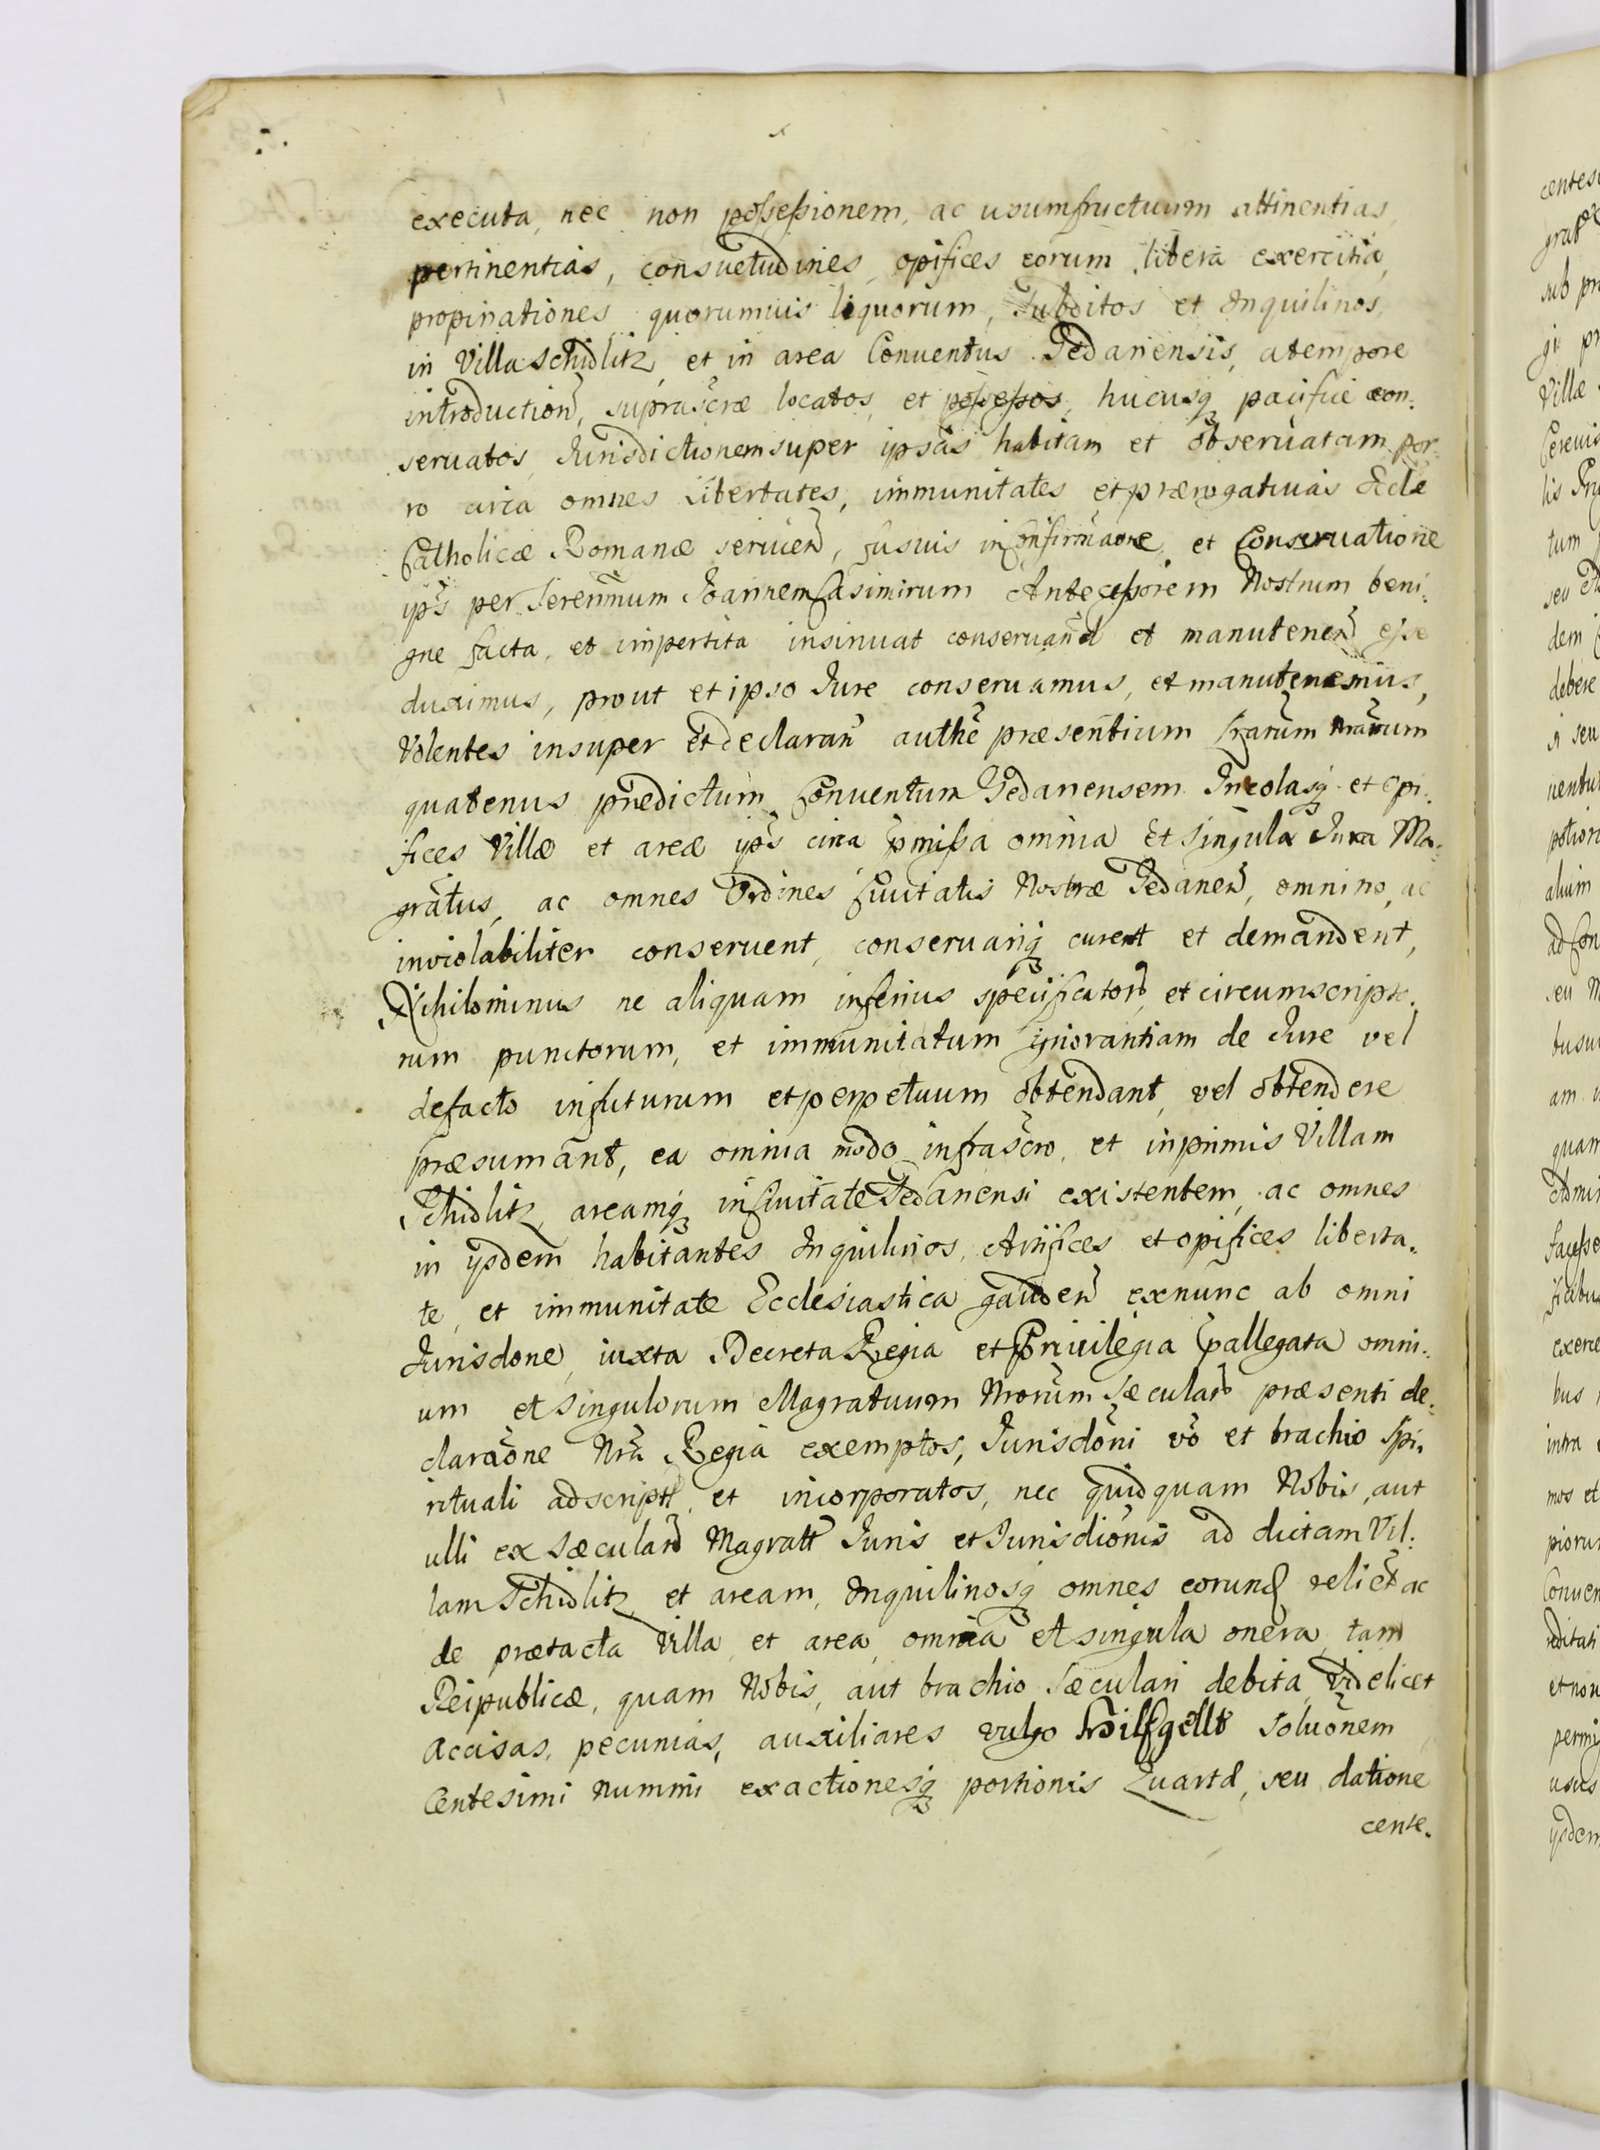 executa, nec non poſseſsionem, ac usumfructuum attinentias,
pertinentias, consvetudines, opifices eorum, libera exercitia,
propinationes quorumvis liquorum, Subditos et Inquilinos,
in Villa Schidlitz, et in area Conventus Gedanensis, a tempore
introduction̄, suprascr̄æ locatos, et poſseſsos, hucusq₃ pacifice con:
servatos, Jurisdictionem super ipsas habitam et observatam, por
ro circa omnes Libertates, immunitates et prærogativas Eccl̄æ
Catholicæ Romanæ servien̄, fusius in Confirm̄aone, et Conservatione
yp̄s per Seren̄mum Joannem Casimirum Anteceſsorem Nostrum beni:
gne facta, et impertita insinuat conservan̄d et manutenen̄ eſse
duximus, prout et ipso Jure conservamus, et manutenemus,
Volentes insuper et declaran̄ auth̄e præsentium Lr̄arum Nr̄arum
quatenus prædictum Conventum Gedanensem Incolasq₃ et Opi:
fices Villæ et areæ yp̄s circa p̄miſsa omnia et Singula Jura Ma:
gr̄atus, ac omnes Ordines Civitatis Nostræ Gedanen̄, omnino, ac
inviolabiliter conservent, conservariq₃ curent et demandent,
Nihilominus ne aliquam inferius specificator̄, et circumscripto:
rum punctorum, et immunitatum ignorantiam de Jure vel
de facto in futurum et perpetuum obtendant, vel obtendere
præsumant, ea omnia modo infrascr̄o, et inprimis Villam
Schidlitz, areamq₃ in Civitate Gedanensi existentem, ac omnes
in ysdem habitantes Inquilinos, Artifices et opifices liberta:
te, et immunitate Ecclesiastica gauden̄ ex nunc ab omni
Jurisdone, iuxta Decreta Regia et Privilegia p̄allegata omni:
um et singulorum Magratuum Nr̄orum Sæcular̄ præsenti de:
clarāone Nr̄a Regia exemptos, Jurisdōni v̄o et brachio Spi:
rituali adscript̄, et incorporatos, nec quidquam Nobis, aut
ulli ex Sæcular̄ Magratt Juris et Jurisdiōnis ad dictam Vil:
lam Schidlitz, et aream, Inquilinosq₃ omnes eorund̄ relict̄ ac
de prætacta Villa, et area, omnia et singula onera, tam
Reipublicæ, quam Nobis, aut brachio Sæculari debita, Videlicet
Accisas, pecunias, auxiliares vulgo Hilfgellt Soluōnem
Centesimi Nummi exactionesq₃ portionis Quartæ, seu datione
cente: